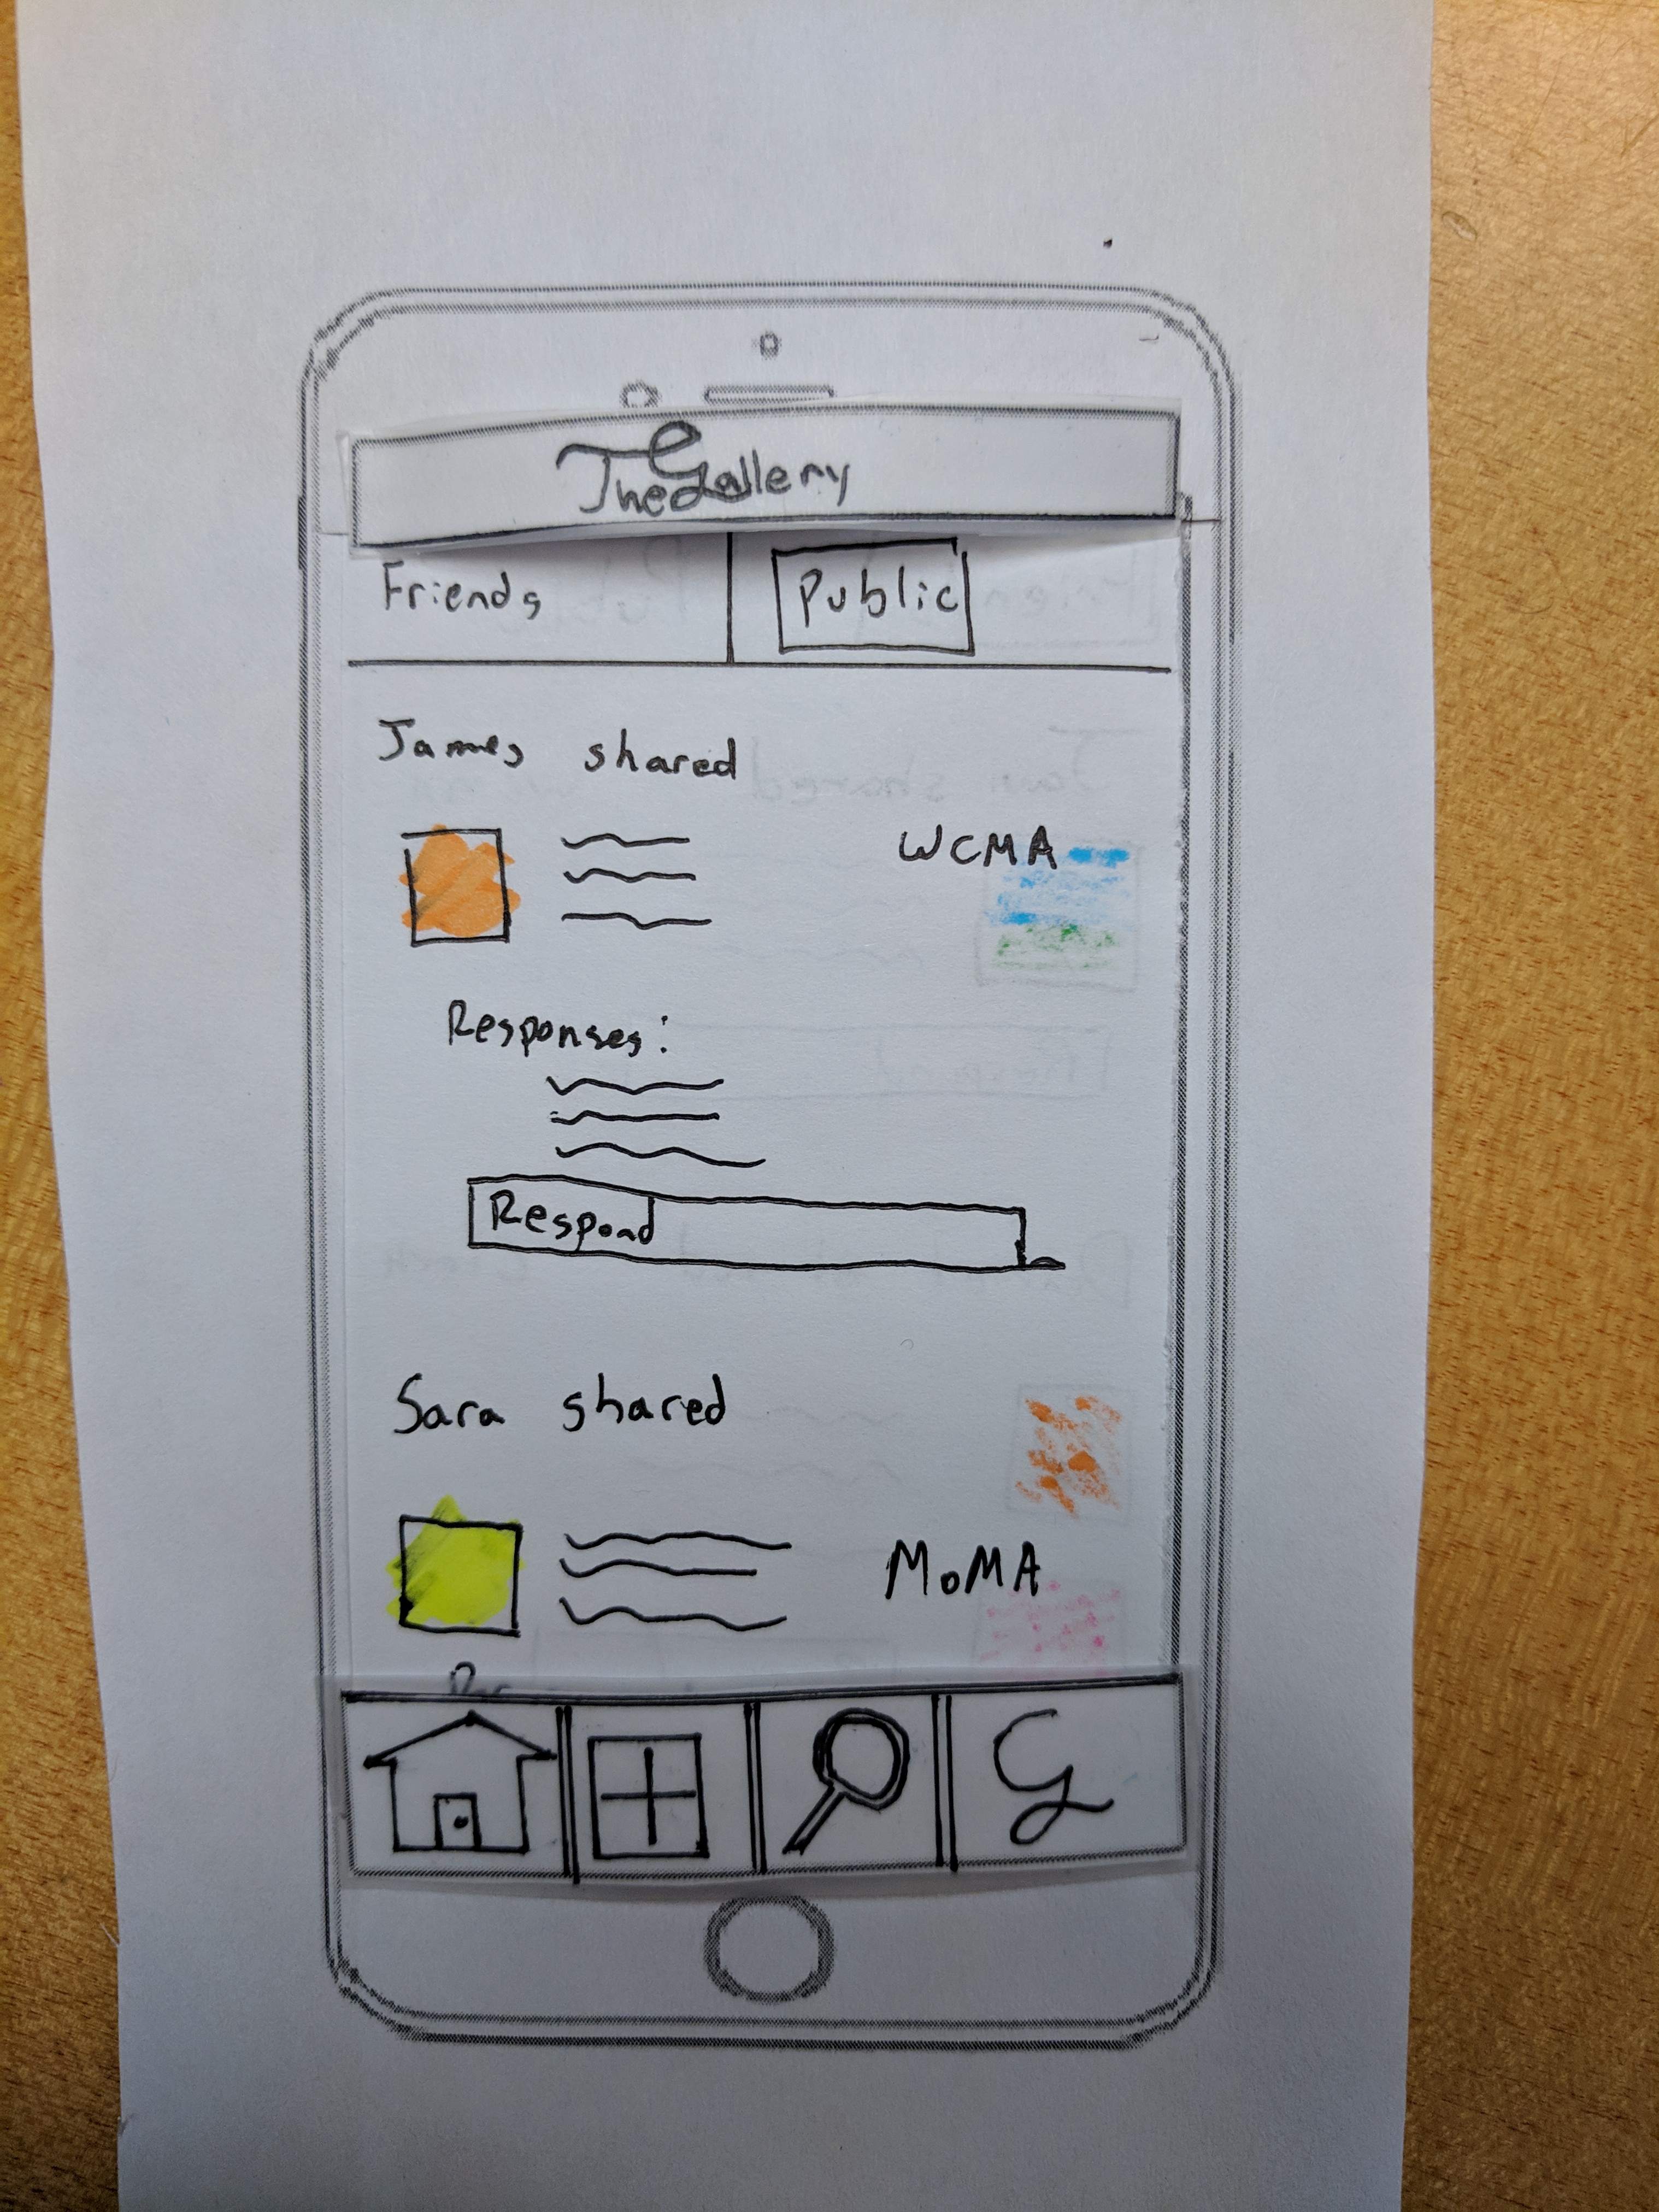 The Gallery
Friends Public
James shared
WCMA
Responses:
Respond
Sara shared
MoMA
G